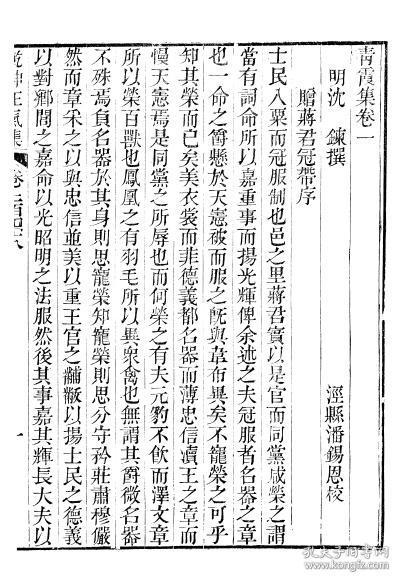 青霞集卷一
明沈 鍊撰 涇縣潘錫恩校
贈蔣君冠帶序
士民入粟而冠服制也邑之里蔣君實以是官而同黨咸榮之謂
當有詞命所以嘉重事而揚光輝俾余述之夫冠服者名器之章
也一命之爵懸於天憲破而服之旣與韋布異矣不寵榮之可乎
知其榮而已矣美衣裳而菲德義都名器而薄忠信瀆王之章而
慢天憲焉是同黨之所辱也而何榮之有夫元豹不飲而澤文章
所以榮百獸也鳳凰之有羽毛所以異衆禽也無謂其爵微名器
不殊焉負名器於其身則思寵榮知寵榮則思分守矜莊肅穆儼
然而章采之以與忠信並美以重王官之黼黻以揚士民之德義
以對鄉閭之嘉命以光昭明之法服然後其事嘉其輝長大夫以
乾坤正氣集
卷二百四十八
一
孔夫子旧书网
www.kongfz.com